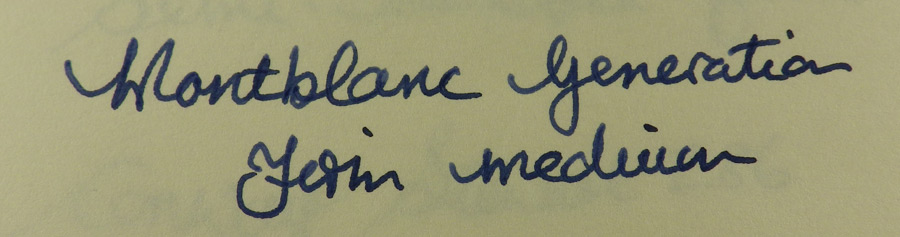 Montblanc Generation
medium